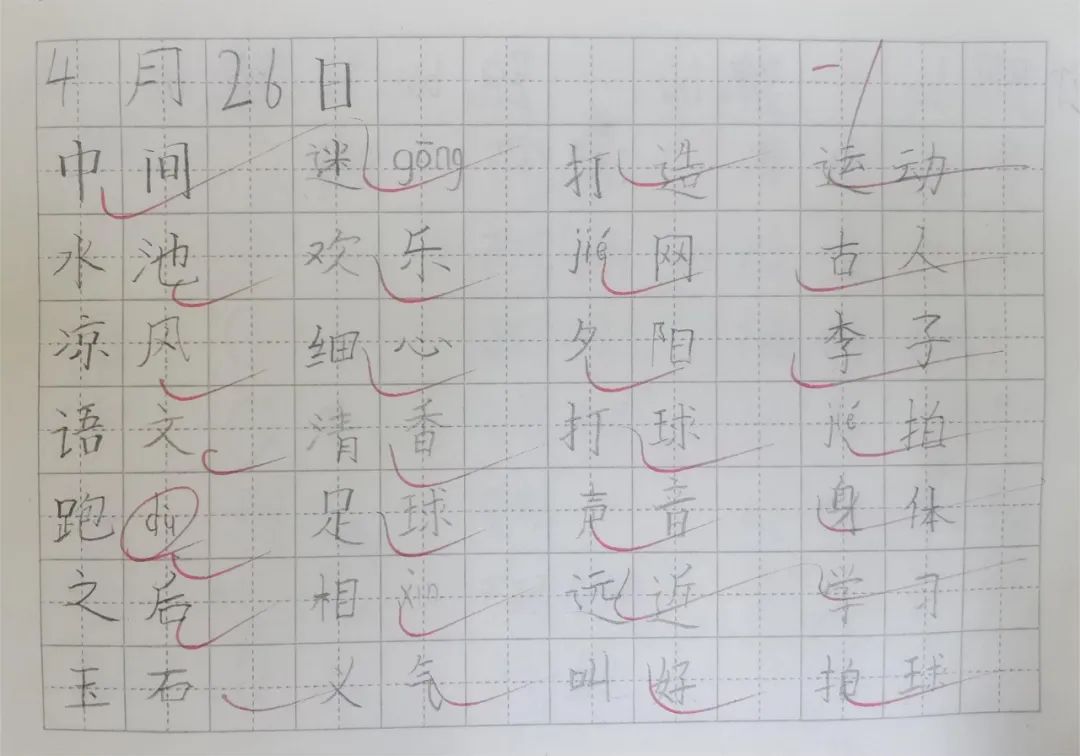 4月26日 -1
中间 迷gōng 打造 运动
水池 欢乐 jié网 古人
凉风 细心 夕阳 李子
语文 清香 打球 jié拍
跑dù 足球 声音 身体
之后 相xìn 远近 学习
玉石 义气 叫好 拍球